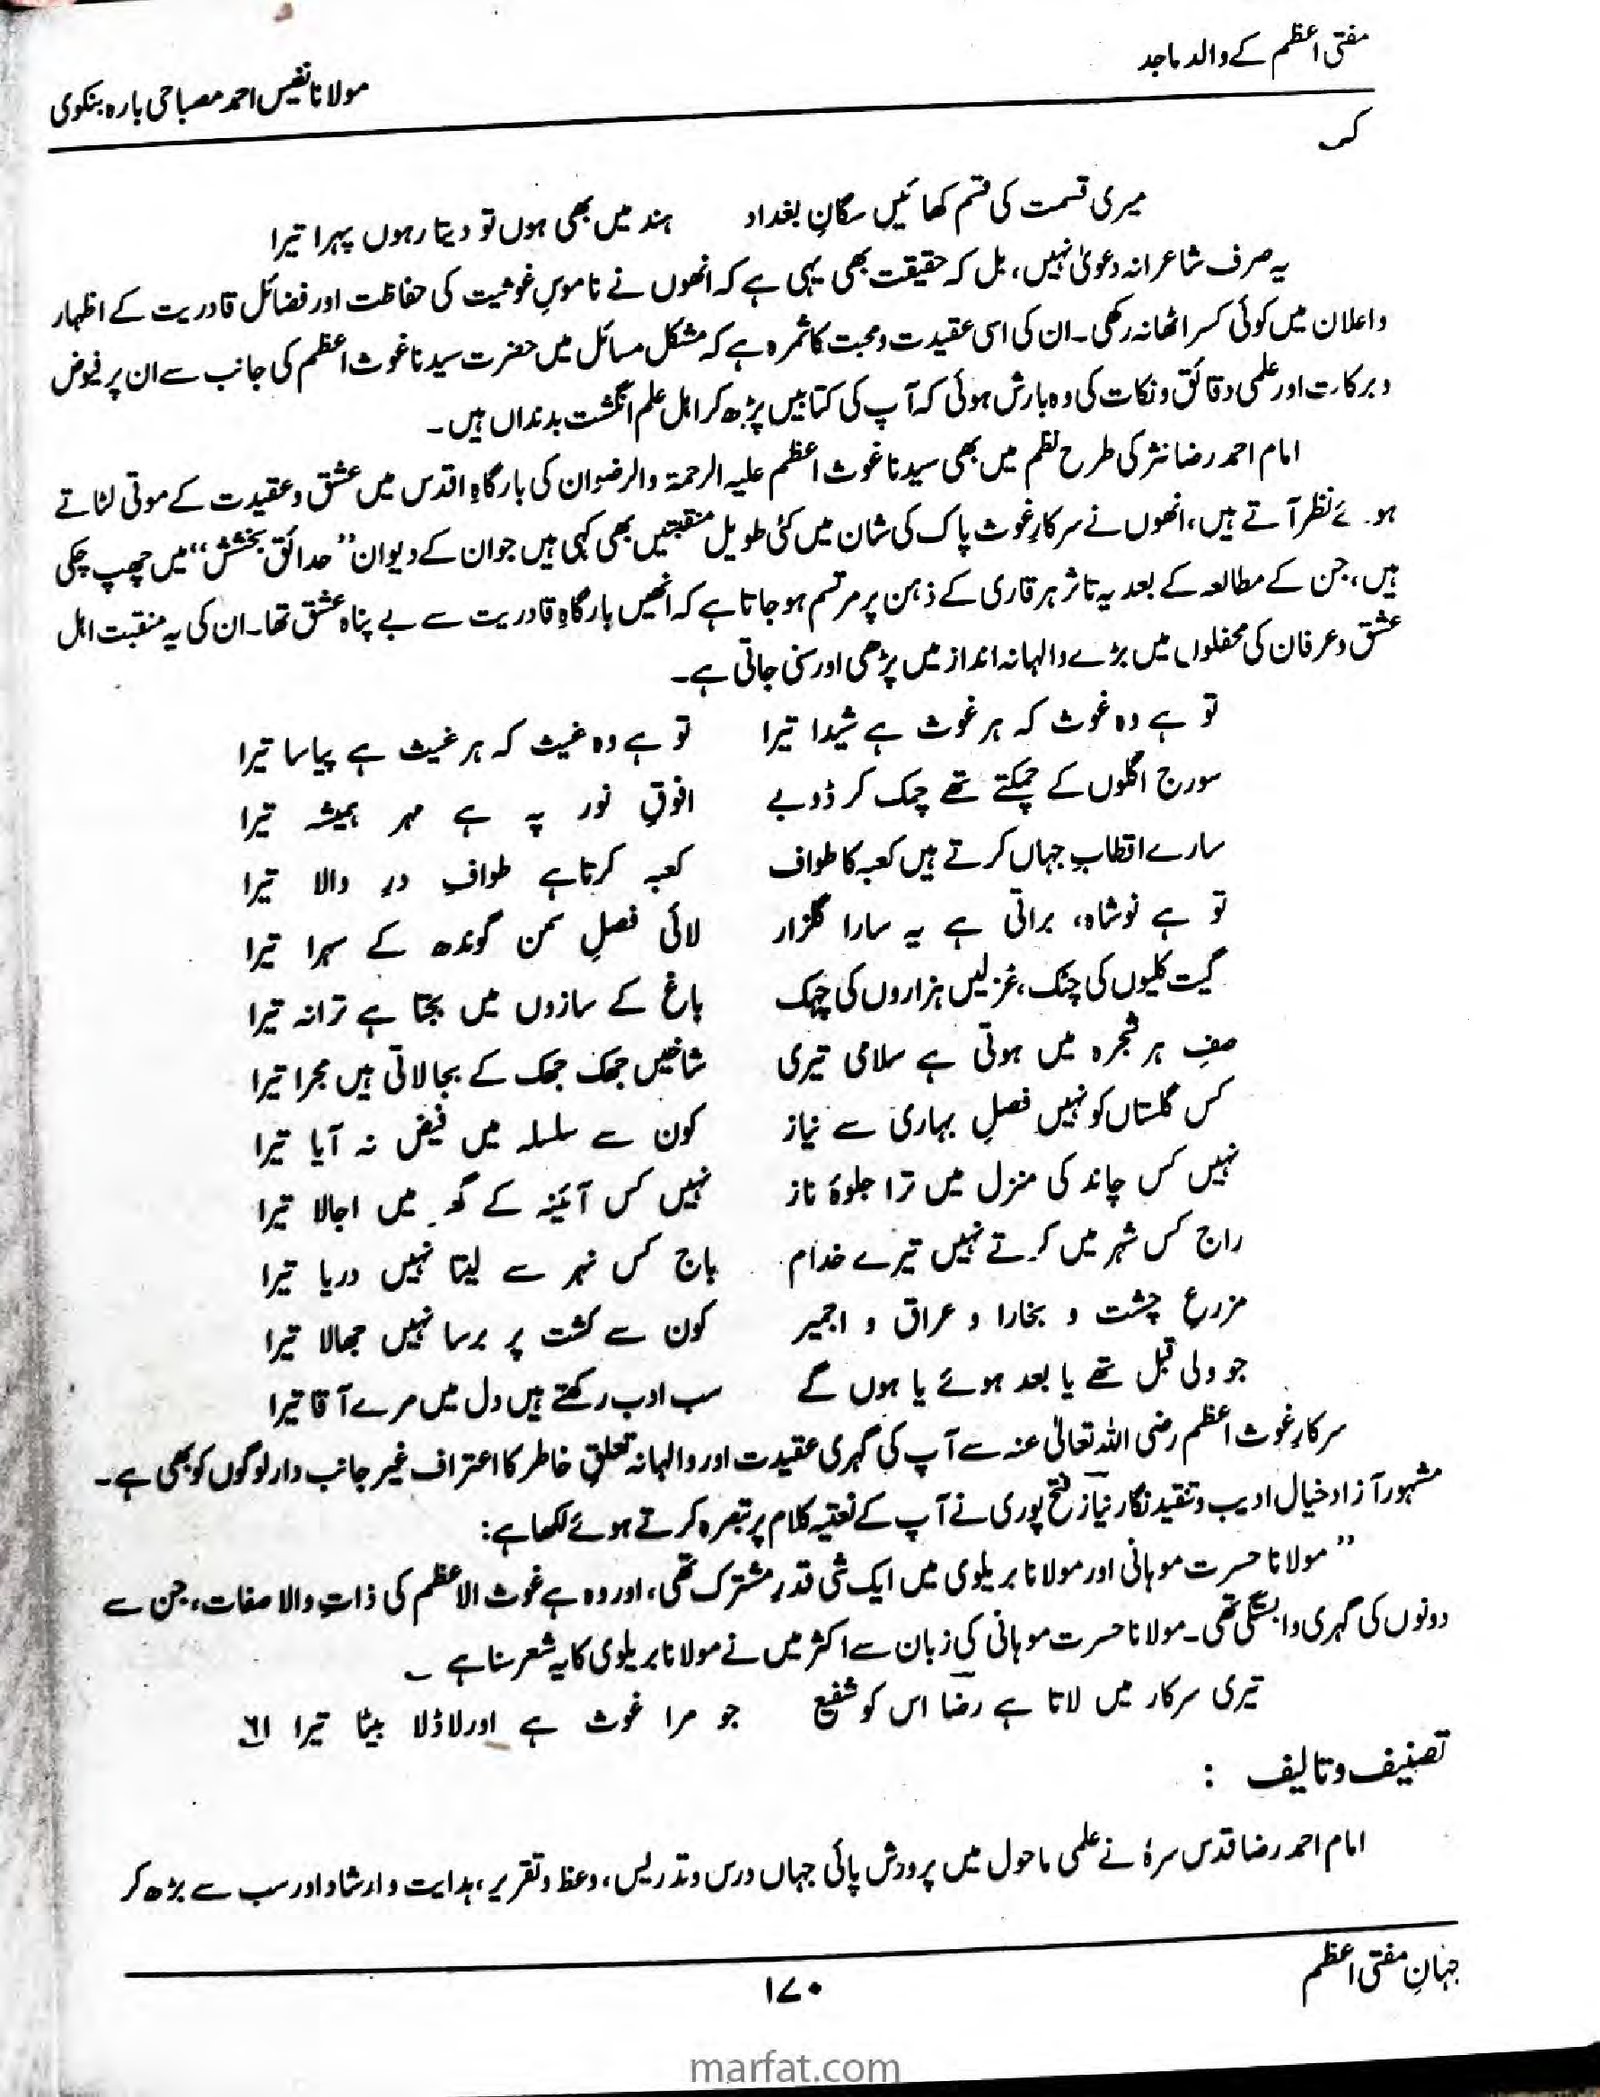 مفتی اعظم کے والد ماجد
مولانا نفیس احمد مصباحی بارہ بنکوی
کہ
میری قسمت کی قسم کھائیں سگانِ بغداد ہند میں بھی ہوں تو دیتا رہوں پہرا تیرا
یہ صرف شاعرانہ دعویٰ نہیں، بل کہ حقیقت بھی یہی ہے کہ انھوں نے ناموسِ غوثیت کی حفاظت اور فضائل قادریت کے اظہار
و اعلان میں کوئی کسر اٹھا نہ رکھی۔ ان کی اسی عقیدت و محبت کا ثمرہ ہے کہ مشکل مسائل میں حضرت سیدنا غوث اعظم کی جانب سے ان پر فیوض
و برکات اور علمی دقائق و نکات کی وہ بارش ہوئی کہ آپ کی کتابیں پڑھ کر اہل علم انگشت بدنداں ہیں۔
امام احمد رضا نثر کی طرح نظم میں بھی سیدنا غوث اعظم علیہ الرحمۃ والرضوان کی بارگاہِ اقدس میں عشق و عقیدت کے موتی لٹاتے
ہوئے نظر آتے ہیں، انھوں نے سرکارِ غوث پاک کی شان میں کئی طویل منقبتیں بھی کہی ہیں جو ان کے دیوان ’’حدائق بخشش‘‘ میں چھپ چکی
ہیں، جن کے مطالعہ کے بعد یہ تاثر ہر قاری کے ذہن پر مرتسم ہو جاتا ہے کہ انھیں بارگاہِ قادریت سے بے پناہ عشق تھا۔ ان کی یہ منقبت اہل
عشق و عرفان کی محفلوں میں بڑے والہانہ انداز میں پڑھی اور سنی جاتی ہے۔
تو ہے وہ غوث کہ ہر غوث ہے شیدا تیرا تو ہے وہ غیث کہ ہر غیث ہے پیاسا تیرا
سورج اگلوں کے چمکتے تھے چمک کر ڈوبے افقِ نور پہ ہے مہر ہمیشہ تیرا
سارے اقطابِ جہاں کرتے ہیں کعبہ کا طواف کعبہ کرتا ہے طوافِ درِ والا تیرا
تو ہے نوشاہ، براتی ہے یہ سارا گلزار لائی فصلِ سمن گوندھ کے سہرا تیرا
گیت کلیوں کی چٹک، غزلیں ہزاروں کی چہک باغ کے سازوں میں بجتا ہے ترانہ تیرا
صفِ ہر شجرہ میں ہوتی ہے سلامی تیری شاخیں جھک جھک کے بجا لاتی ہیں مجرا تیرا
کس گلستاں کو نہیں فصلِ بہاری سے نیاز کون سے سلسلہ میں فیض نہ آیا تیرا
نہیں کس چاند کی منزل میں ترا جلوۂ ناز نہیں کس آئینہ کے گھر میں اجالا تیرا
راج کس شہر میں کرتے نہیں تیرے خدام باج کس نہر سے لیتا نہیں دریا تیرا
مزرعِ چشت و بخارا و عراق و اجمیر کون سے کشت پر برسا نہیں جھالا تیرا
جو ولی قبل تھے یا بعد ہوئے یا ہوں گے سب ادب رکھتے ہیں دل میں مرے آقا تیرا
سرکارِ غوث اعظم رضی اللہ تعالیٰ عنہ سے آپ کی گہری عقیدت اور والہانہ تعلقِ خاطر کا اعتراف غیر جانب دار لوگوں کو بھی ہے۔
مشہور آزاد خیال ادیب و تنقید نگار نیاز فتح پوری نے آپ کے نعتیہ کلام پر تبصرہ کرتے ہوئے لکھا ہے:
’’مولانا حسرت موہانی اور مولانا بریلوی میں ایک شی قدرِ مشترک تھی، اور وہ ہے غوث الاعظم کی ذاتِ والا صفات، جن سے
دونوں کی گہری وابستگی تھی۔ مولانا حسرت موہانی کی زبان سے اکثر میں نے مولانا بریلوی کا یہ شعر سنا ہے ؂
تیری سرکار میں لاتا ہے رضا اس کو شفیع جو مرا غوث ہے اور لاڈلا بیٹا تیرا ۶۱
تصنیف و تالیف :
امام احمد رضا قدس سرہٗ نے علمی ماحول میں پرورش پائی جہاں درس و تدریس، وعظ و تقریر، ہدایت و ارشاد اور سب سے بڑھ کر
جہانِ مفتی اعظم
۱۷۰
marfat.com